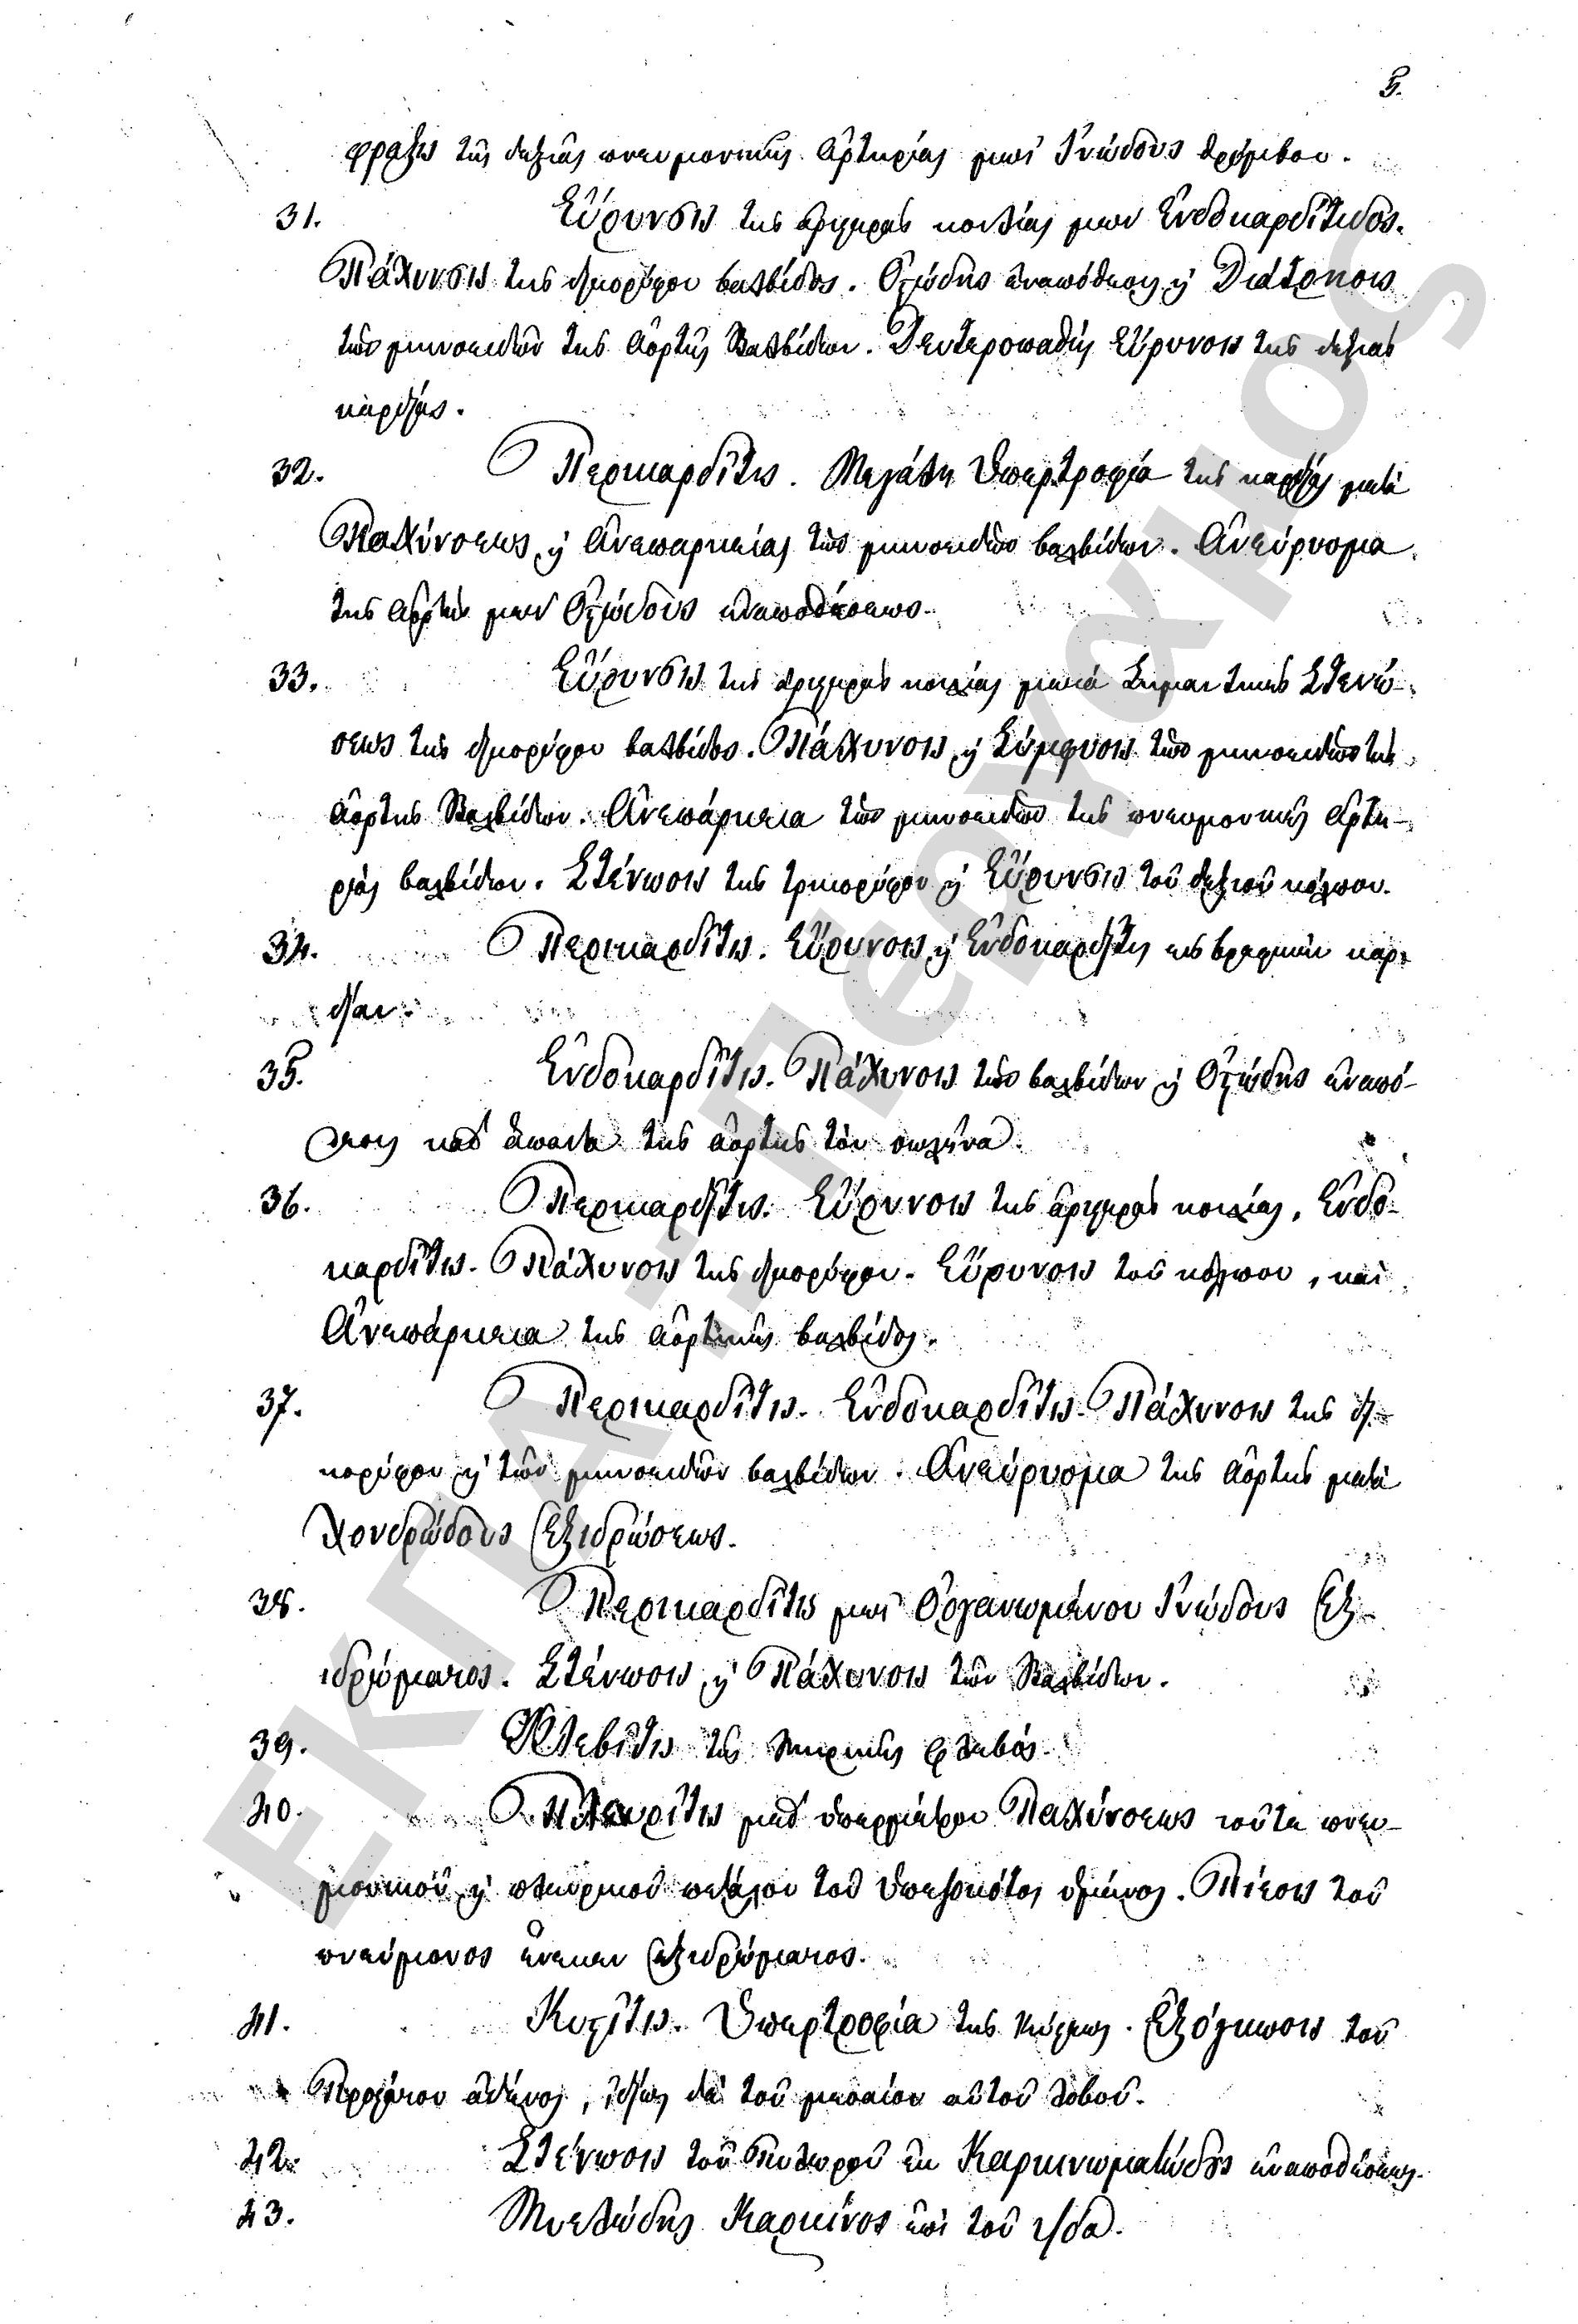 5.
φραξις τῆς δεξιᾶς πνευμονικῆς Ἀρτηρίας μετ' Ἰνώδους θρόμβου.
31. Εὔρυνσις τῆς ἀριστερᾶς κοιλίας μετ' Ἐνδοκαρδίτιδος.
Πάχυνσις τῆς διγλώχινος βαλβίδος. Ὀστώδης ἐναπόθεσις ἢ Διάτρησις
τῶν μηνοειδῶν τῆς Ἀορτῆς Βαλβίδων. Δευτεροπαθὴς Εὔρυνσις τῆς δεξιᾶς
καρδίας.
32. Περικαρδῖτις. Μεγάλη Ὑπερτροφία τῆς καρδίας μετὰ
Παχύνσεως ἢ Ἀνεπαρκείας τῶν μηνοειδῶν βαλβίδων. Ἀνεύρυσμα
τῆς Ἀορτῆς μετ' Ὀστώδους ἐναποθέσεως.
33. Εὔρυνσις τῆς ἀριστερᾶς κοιλίας μετὰ Σημαντικῆς Στενώ-
σεως τῆς δικορύφου βαλβίδος. Πάχυνσις ἢ Σύμφυσις τῶν μηνοειδῶν τῆς
ἀορτῆς Βαλβίδων. Ἀνεπάρκεια τῶν μηνοειδῶν τῆς πνευμονικῆς ἀρτη-
ρίας βαλβίδων. Στένωσις τῆς τρικορύφου ἢ Εὔρυνσις τοῦ δεξιοῦ κόλπου.
34. Περικαρδῖτις. Εὔρυνσις ἢ Ἐνδοκαρδῖτις εἰς βρεφικὴν καρ-
δίαν.
35. Ἐνδοκαρδῖτις. Πάχυνσις τῶν βαλβίδων ἢ Ὀστώδης ἐναπό-
θεσις καθ' ἅπαντα τῆς ἀορτῆς τὸν σωλῆνα.
36. Περικαρδῖτις. Εὔρυνσις τῆς ἀριστερᾶς κοιλίας, Ἐνδο-
καρδῖτις. Πάχυνσις τῆς δικορύφου. Εὔρυνσις τοῦ κόλπου, καὶ
Ἀνεπάρκεια τῆς ἀορτικῆς βαλβίδος.
37. Περικαρδῖτις. Ἐνδοκαρδῖτις. Πάχυνσις τῆς δι-
κορύφου ἢ τῶν μηνοειδῶν βαλβίδων. Ἀνεύρυσμα τῆς ἀορτῆς μετὰ
Χονδρώδους Ἐξιδρώσεως.
38. Περικαρδῖτις μετ' Ὀργανωμένου Ἰνώδους Ἐξ-
ιδρώματος. Στένωσις ἢ Πάχυνσις τῶν Βαλβίδων.
39. Φλεβῖτις τῆς μηρικῆς φλεβός.
40. Πλευρῖτις μεθ' ὑπερμέτρου Παχύνσεως τοῦτε πνευ-
μονικοῦ ἢ πλευρικοῦ πετάλου τοῦ ὑπεζωκότος ὑμένος. Πίεσις τοῦ
πνεύμονος ἕνεκεν ἐξιδρώματος.
41. Κυστῖτις. Ὑπερτροφία τῆς κύστεως. Ἐξόγκωσις τοῦ
Προστάτου ἀδένος, ἰδίως δὲ τοῦ μεσαίου αὐτοῦ λοβοῦ.
42. Στένωσις τοῦ Πυλωροῦ ἐκ Καρκινωματώδους ἐναποθέσεως.
43. Μυελώδης Καρκίνος ἐπὶ τοῦ
ΕΚΠΑ-Πέργαμος